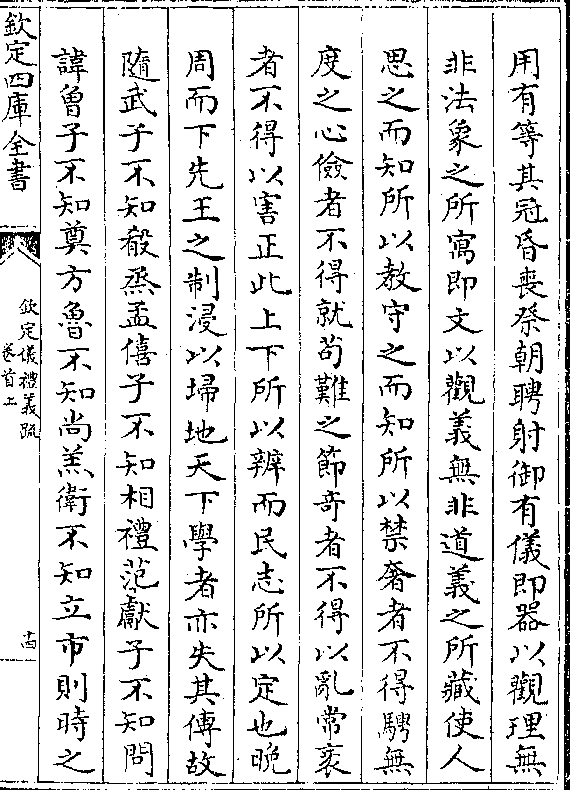 用有等其冠昏喪祭朝聘射御有儀即器以觀理無
非法象之所寓即文以觀義無非道義之所藏使人
思之而知所以教守之而知所以禁奢者不得騁無
度之心儉者不得就苟難之節奇者不得以亂常衺
者不得以害正此上下所以辨而民志所以定也晚
周而下先王之制浸以埽地天下學者亦失其傳故
隨武子不知殽烝孟僖子不知相禮范獻子不知問
諱曾子不知奠方魯不知尚羔衛不知立市則時之
欽定四庫全書
欽定儀禮義疏
卷首上
十四